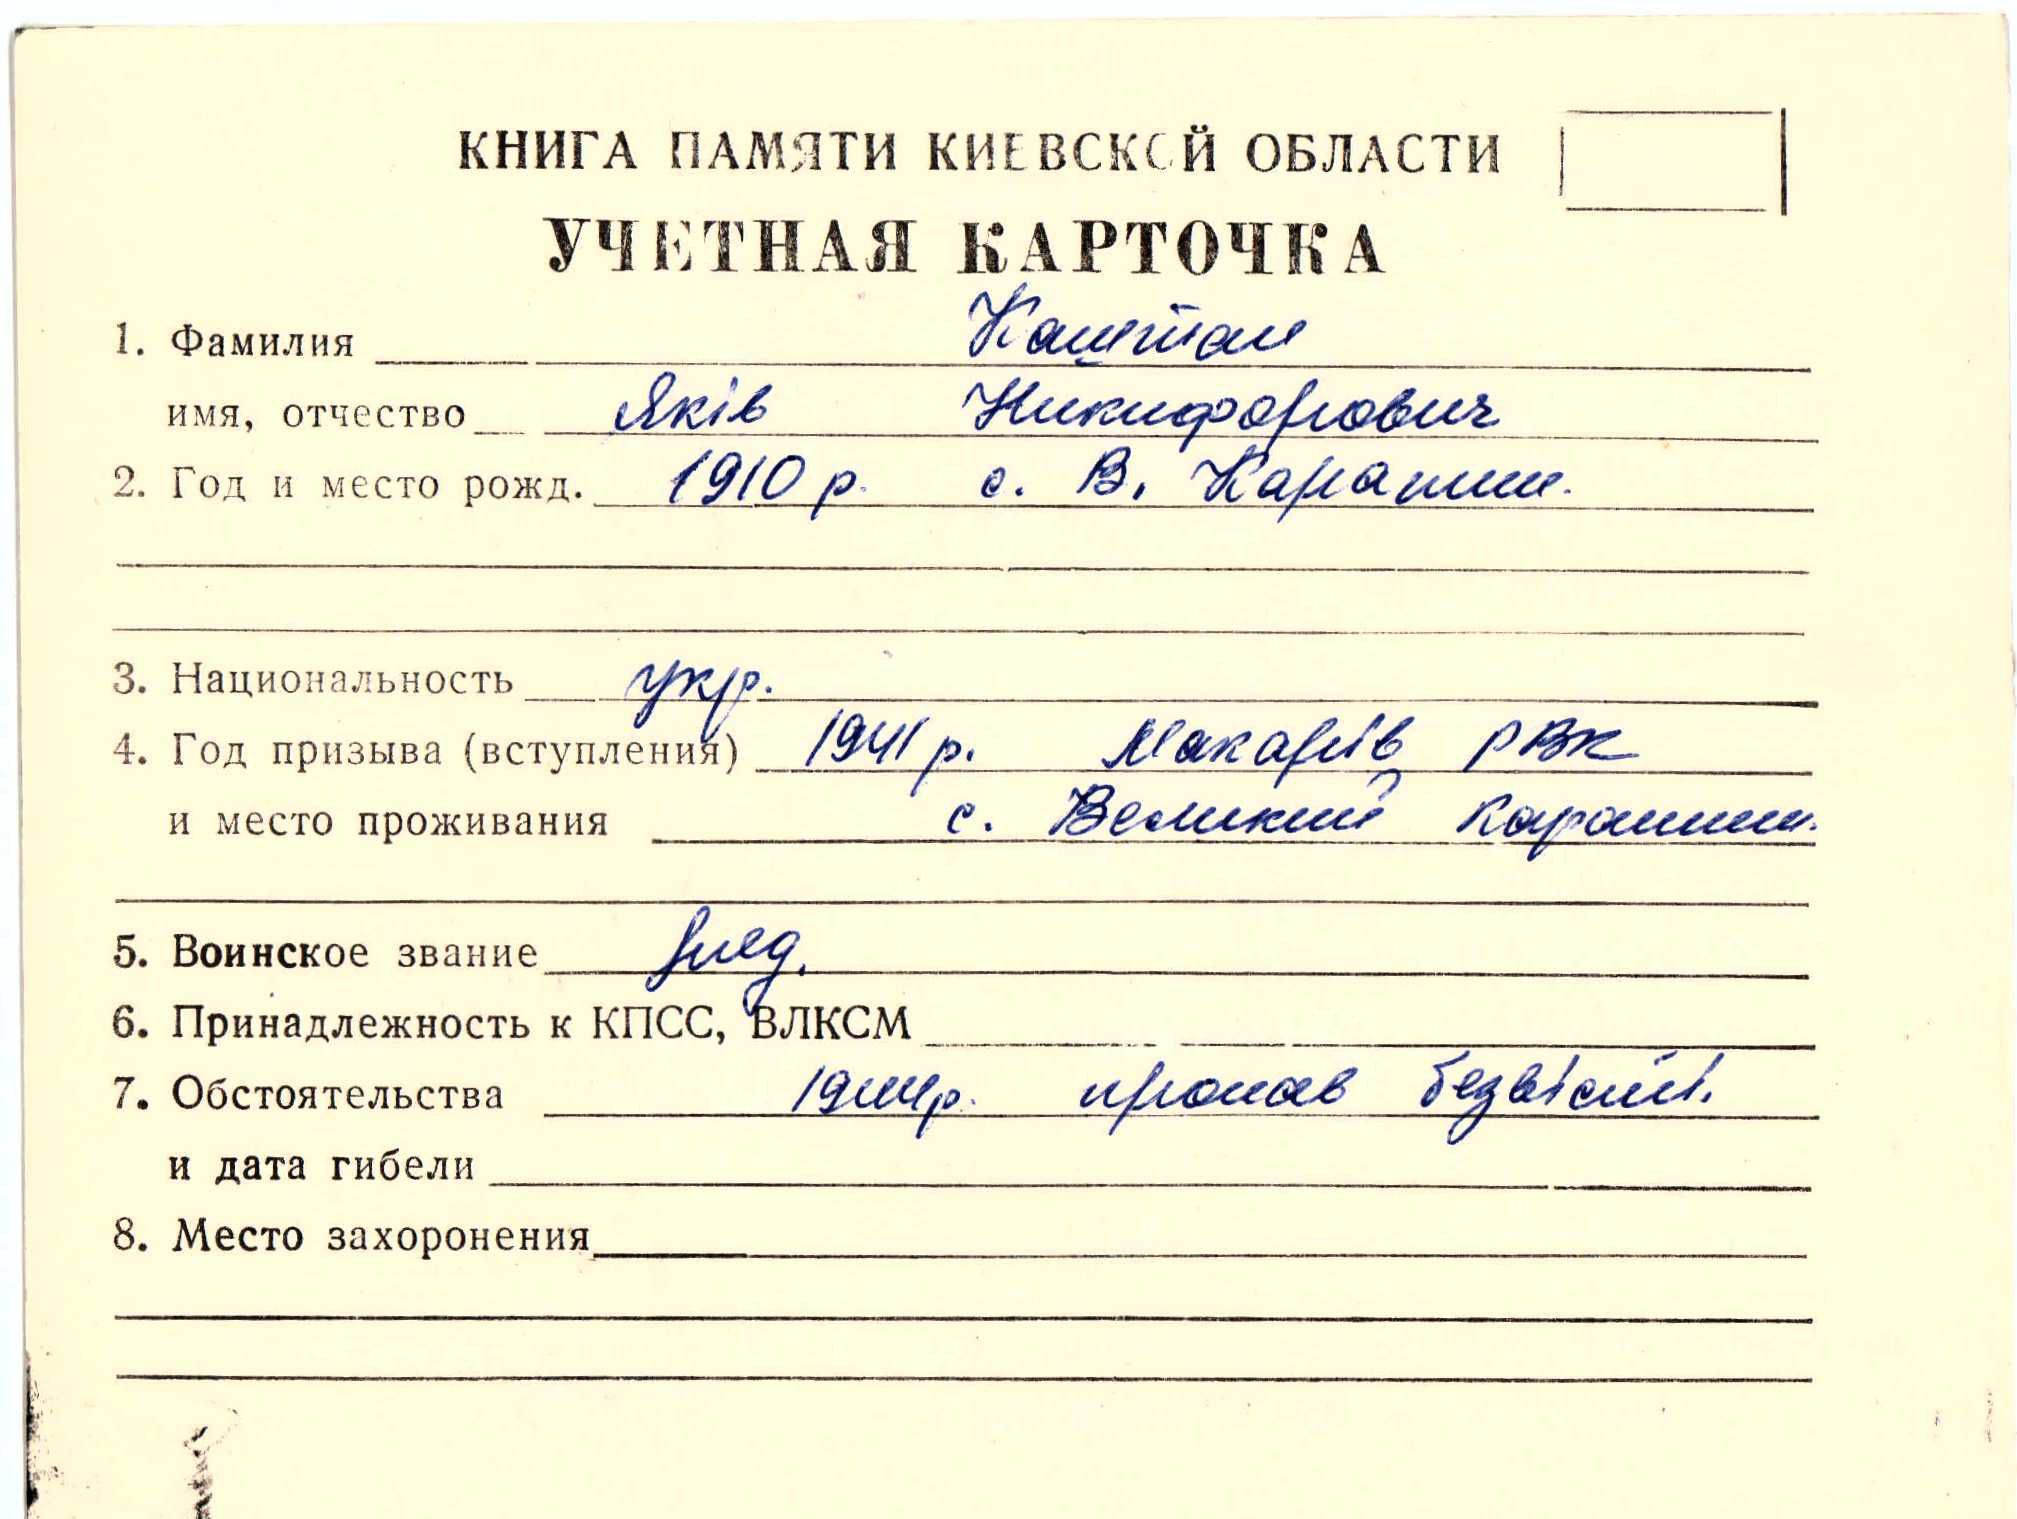 КНИГА ПАМЯТИ КИЕВСКОЙ ОБЛАСТИ
УЧЕТНАЯ КАРТОЧКА
1. Фамилия Каштан
имя, отчество Яків Никифорович
2. Год и место рожд. 1910 р. с. В. Карашин.
3. Национальность укр.
4. Год призыва (вступления) 1941 р. Макарів РВК
и место проживания с. Великий Карашин.
5. Воинское звание ряд.
6. Принадлежность к КПСС, ВЛКСМ
7. Обстоятельства 1944р. пропав безвісті.
и дата гибели
8. Место захоронения